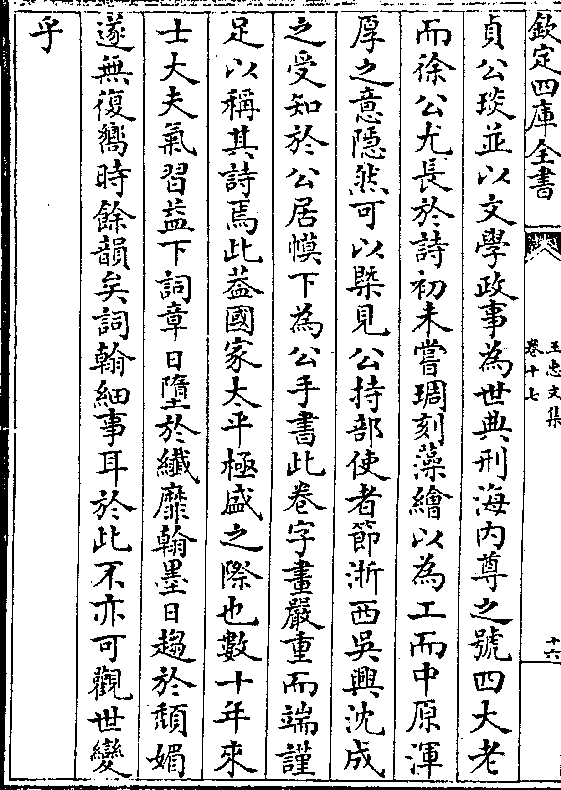 欽定四庫全書
王忠文集
卷十七
十六
貞公琰並以文學政事為世典刑海内尊之號四大老
而徐公尤長於詩初未嘗琱刻藻繪以為工而中原渾
厚之意隱然可以槩見公持部使者節浙西吳興沈成
之受知於公居幙下為公手書此卷字畫嚴重而端謹
足以稱其詩焉此葢國家太平極盛之際也數十年來
士大夫氣習益下詞章日墮於纖靡翰墨日趨於頽媚
遂無復嚮時餘韻矣詞翰細事耳於此不亦可觀世變
乎